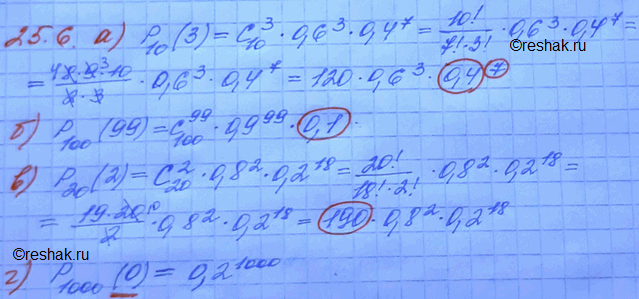 25.6. а) P₁₀(3) = C₁₀³ · 0,6³ · 0,4⁷ = 10!/(7!·3!) · 0,6³ · 0,4⁷ =
= (8·9·10)/(2·3) · 0,6³ · 0,4⁷ = 120 · 0,6³ · 0,4⁷
©reshak.ru
б) P₁₀₀(99) = C₁₀₀⁹⁹ · 0,9⁹⁹ · 0,1
в) P₂₀(2) = C₂₀² · 0,8² · 0,2¹⁸ = 20!/(18!·2!) · 0,8² · 0,2¹⁸ =
= (19·20)/2 · 0,8² · 0,2¹⁸ = 190 · 0,8² · 0,2¹⁸
©reshak.ru
г) P₁₀₀₀(0) = 0,2¹⁰⁰⁰